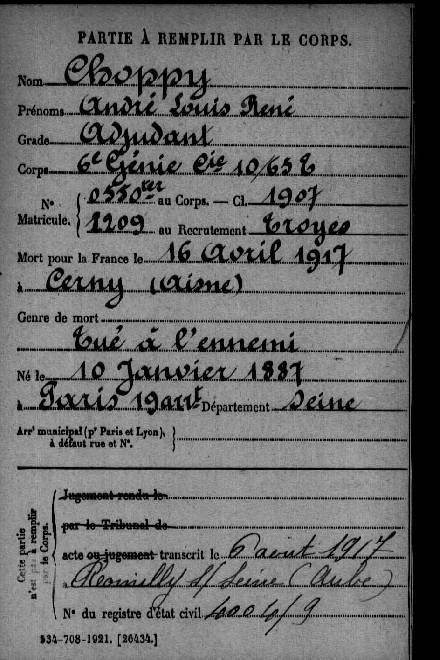 PARTIE À REMPLIR PAR LE CORPS.
Nom Choppy
Prénoms André Louis René
Grade Adjudant
Corps 6e Génie Cie 10/65 T
N° Matricule. { 0550ter au Corps. — Cl. 1907
1209 au Recrutement Troyes
Mort pour la France le 16 Avril 1917
à Cerny (Aisne)
Genre de mort
Tué à l'ennemi
Né le 10 Janvier 1887
à Paris 19arrt Département Seine
Arrt municipal (pr Paris et Lyon), à défaut rue et N°. }
Cette partie n'est pas à remplir par le Corps.
Jugement rendu le
par le Tribunal de
acte ou jugement transcrit le 6 août 1917
à Romilly s/ Seine (Aube)
N° du registre d'état civil 400 4/9
534-708-1921. [26434.]